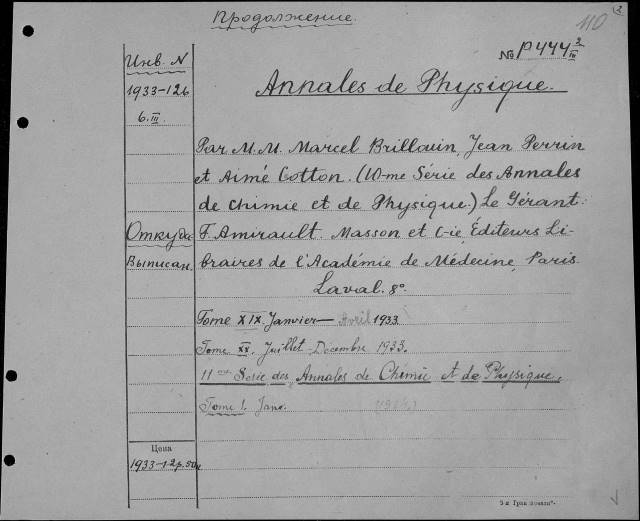 Продолжение.
110
№ P444 3/III
Инв. N
1933-126
6.III
Annales de Physique.
Par M.M. Marcel Brillouin, Jean Perrin
et Aimé Cotton. (10-me Série des Annales
de Chimie et de Physique.) Le Gérant:
Откуда
F. Amirault. Masson et C-ie, Éditeurs Li-
Выписан.
braires de l'Académie de Médecine, Paris
Laval. 8°.
Tome XIX. Janvier— Avril 1933.
Tome XX, Juillet-Décembre 1933.
11me Série des Annales de Chimie et de Physique.
Tome 1. Janv.
Цена
1933-12р.50к